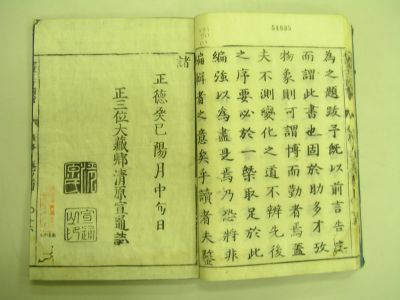 51895
為之題跋予既以前言告達
而謂此書也固於助多才孜
物象則可謂博而勤者焉蓋
夫不測變化之道不辨先後
之序要必於一槩取足於此
編強以為盡是焉乃恐將非
編輯者之意矣乎讀者夫鑒
諸
正德癸巳陽月中旬日
正三位大藏卿清原宣通誌